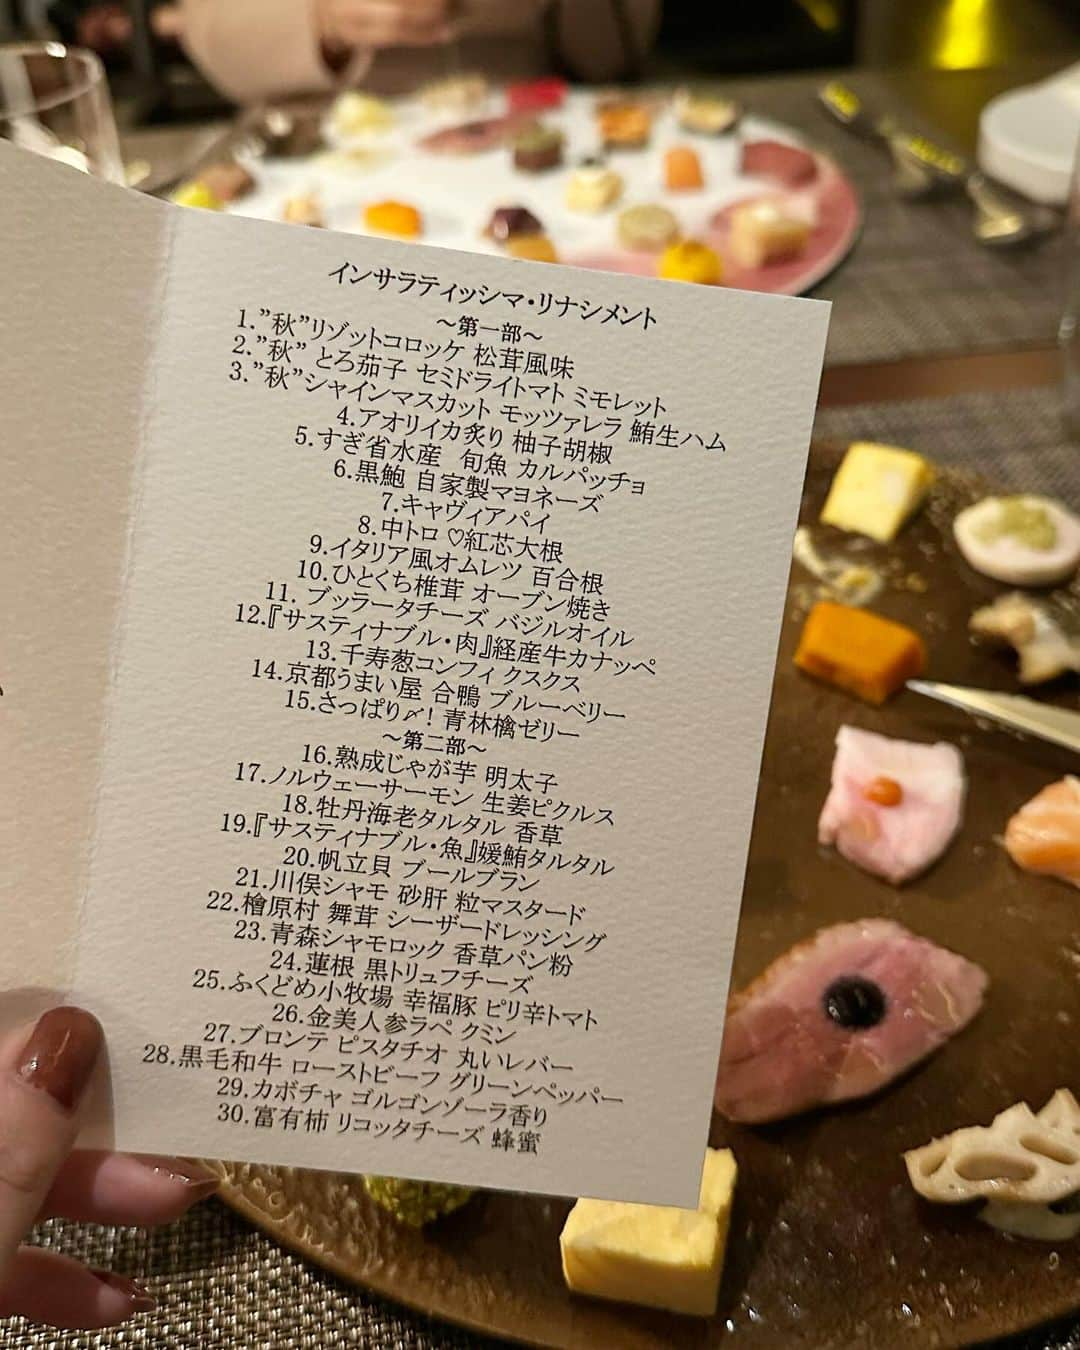 インサラティッシマ・リナシメント
～第一部～
1.”秋”リゾットコロッケ 松茸風味
2.”秋” とろ茄子 セミドライトマト ミモレット
3.”秋”シャインマスカット モッツァレラ 鮪生ハム
4.アオリイカ炙り 柚子胡椒
5.すぎ省水産 旬魚 カルパッチョ
6.黒鮑 自家製マヨネーズ
7.キャヴィアパイ
8.中トロ ♡紅芯大根
9.イタリア風オムレツ 百合根
10.ひとくち椎茸 オーブン焼き
11. ブッラータチーズ バジルオイル
12.『サスティナブル・肉』経産牛カナッペ
13.千寿葱コンフィ クスクス
14.京都うまい屋 合鴨 ブルーベリー
15.さっぱり〆! 青林檎ゼリー
～第二部～
16.熟成じゃが芋 明太子
17.ノルウェーサーモン 生姜ピクルス
18.牡丹海老タルタル 香草
19.『サスティナブル・魚』媛鮪タルタル
20.帆立貝 ブールブラン
21.川俣シャモ 砂肝 粒マスタード
22.檜原村 舞茸 シーザードレッシング
23.青森シャモロック 香草パン粉
24.蓮根 黒トリュフチーズ
25.ふくどめ小牧場 幸福豚 ピリ辛トマト
26.金美人参ラペ クミン
27.ブロンテ ピスタチオ 丸いレバー
28.黒毛和牛 ローストビーフ グリーンペッパー
29.カボチャ ゴルゴンゾーラ香り
30.富有柿 リコッタチーズ 蜂蜜